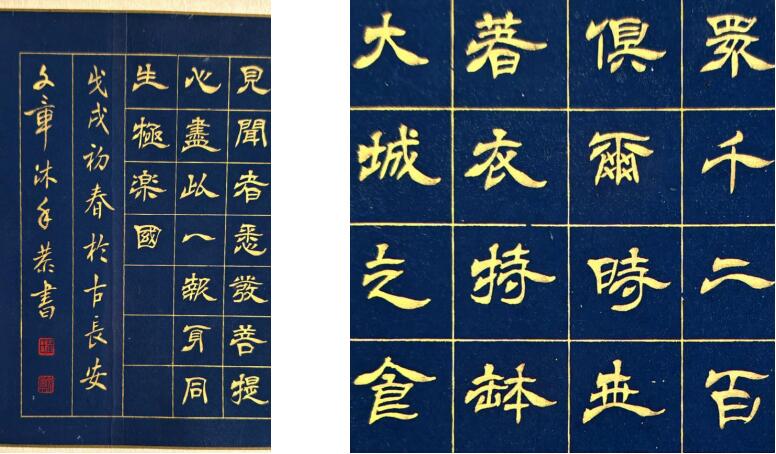 見聞者悉發菩提
心盡此一報身同
生極楽國
戊戌初春於古長安
文章沐手恭書
眾千二百
俱爾時世
著衣持缽
大城之食